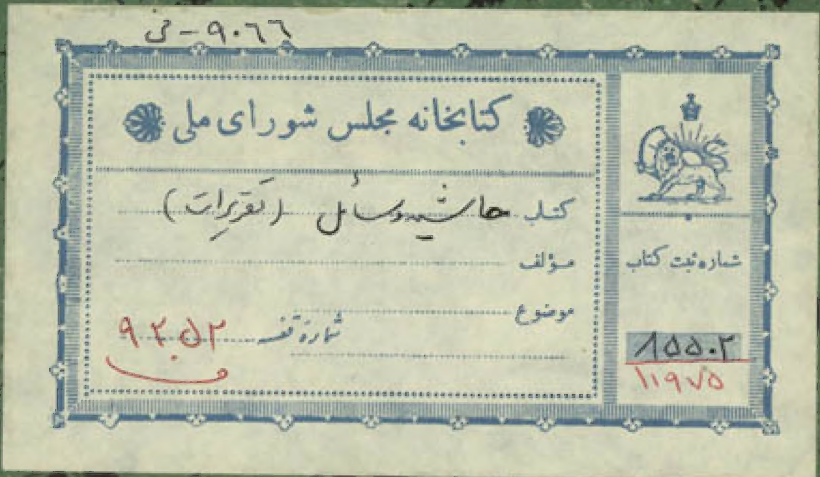 ۹۰۶۶-فی
کتابخانه مجلس شورای ملی
کتاب حاشیه وسائل (تقریرات)
مؤلف
موضوع
شماره قفسه
شماره ثبت کتاب
۸۵۵۰۲
۱۱۹۷۵